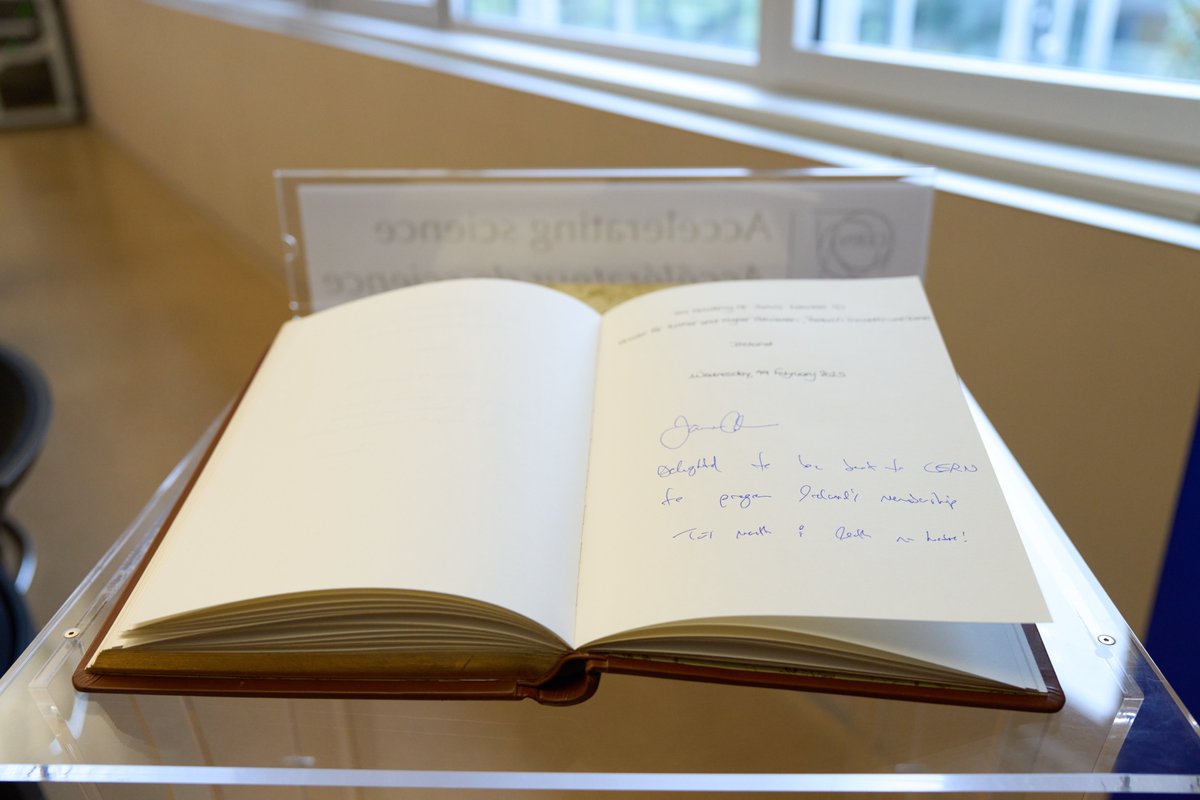 CERN
Accelerating science
Accélérateur de science
His Excellency Mr James Lawless TD
Minister for Further and Higher Education, Research, Innovation and Science
Ireland
Wednesday, 19 February 2025
Delighted to be back to CERN
to progress Ireland's membership
Tús maith is leath na hoibre!